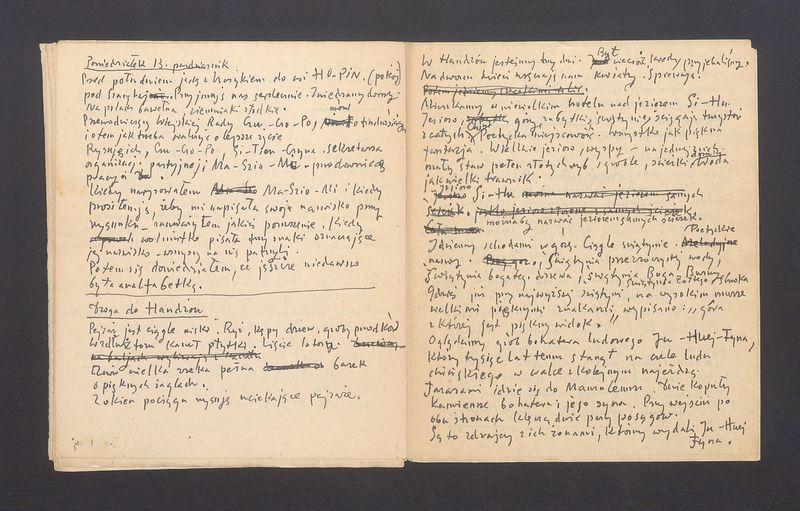 Poniedziałek 13. październik
Przed południem jadę z Mosykiem do wsi HO-PIN. (pokój)
pod Szanghajem. Przyjmują nas serdecznie. Zwiedzamy domy.
Na polach bawełna, ziemniaki słodkie.
Przewodniczący Wiejskiej Rady Gu-Go-Po, mówi
i o tem jak trzeba walczyć o lepsze życie
Rysuję ich, Gu-Go-Po, Si-Tien-Czyna-sekretarza
organizacji partyjnej i Ma-Szio-Mi-przodownicę
pracy.
Kiedy narysowałem Ma-Szio-Mi i kiedy
prosiłem ją, żeby mi napisała swoje nazwisko przy
rysunku - zauważyłem jakieś poruszenie. Kiedy
wolniutko pisała trzy znaki oznaczające
jej nazwisko - wszyscy na nią patrzyli.
Potem się dowiedziałem, że jeszcze niedawno
była analfabetką.
Droga do Handżou
Pejzaż jest ciągle niski. Ryż, kępy drzew, groby przodków
Wzdłuż toru kanał płytki. Liście lotosu.
wielka rzeka pełna barek
o pięknych żaglach.
Z okien pociągu rysuję uciekające pejzaże.
W Handżou jesteśmy trzy dni. Był wieczór, kiedy przyjechaliśmy.
Na dworcu dzieci wręczają nam kwiaty. Śpiewają.
Mieszkamy w niewielkim hotelu nad jeziorem Si-Hu.
Jezioro, góry, zabytki, świątynie ściągają turystów
z całych Chin. Poetycka miejscowość - wszystko jak piękna
fantazja. Wielkie jezioro, wyspy - na jednej
mały staw pełen złotych ryb i groble, ścieżki. Woda
jak wielki trawnik.
Jezioro Si-Hu
można by nazwać jeziorem samych ścieżek.
Idziemy schodami w górę. Ciągle świątynie. Poetyckie
nazwy. Świątynia przezroczystej wody,
Świątynia bogatego drzewa, Świątynia Boga Burzy,
Świątynia żółtego
Gdzieś już przy najwyższej świątyni, na wysokim murze
wielkimi pięknymi znakami wypisano: "góra
z której jest piękny widok."
Oglądamy grób bohatera ludowego Ju-Huej-Fyna,
który tysiąc lat temu stanął na czele ludu
chińskiego w walce z kolejnym najeźdźcą.
Tarasami idzie się do Mauzoleum. Dwie kopuły
kamienne bohatera i jego syna. Przy wejściu po
obu stronach klęczą dwie pary posągów.
Są to zdrajcy z ich żonami, którzy wydali Ju-Huej
Fyna.